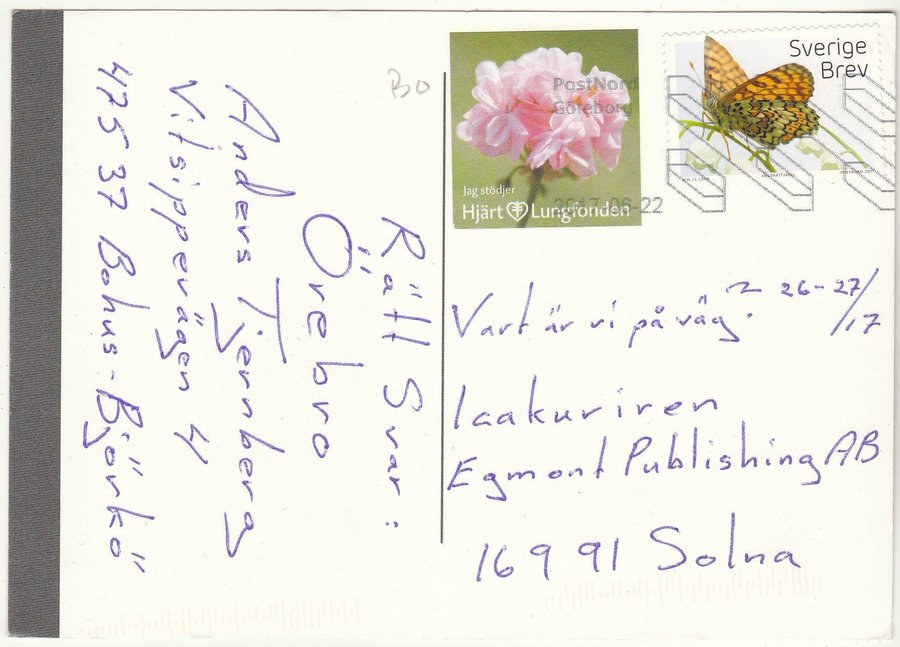 Rätt Svar:
Örebro
Anders Tjernberg
Vitsippevägen 4
475 37 Bohus-Björkö
BO
Jag stödjer
Hjärt Lungfonden
PostNord
Göteborg
2017-06-22
Sverige
Brev
POSTNORD 2017
Vart är vi på väg? 26-27/17
Iaakuriren
Egmont Publishing AB
169 91 Solna